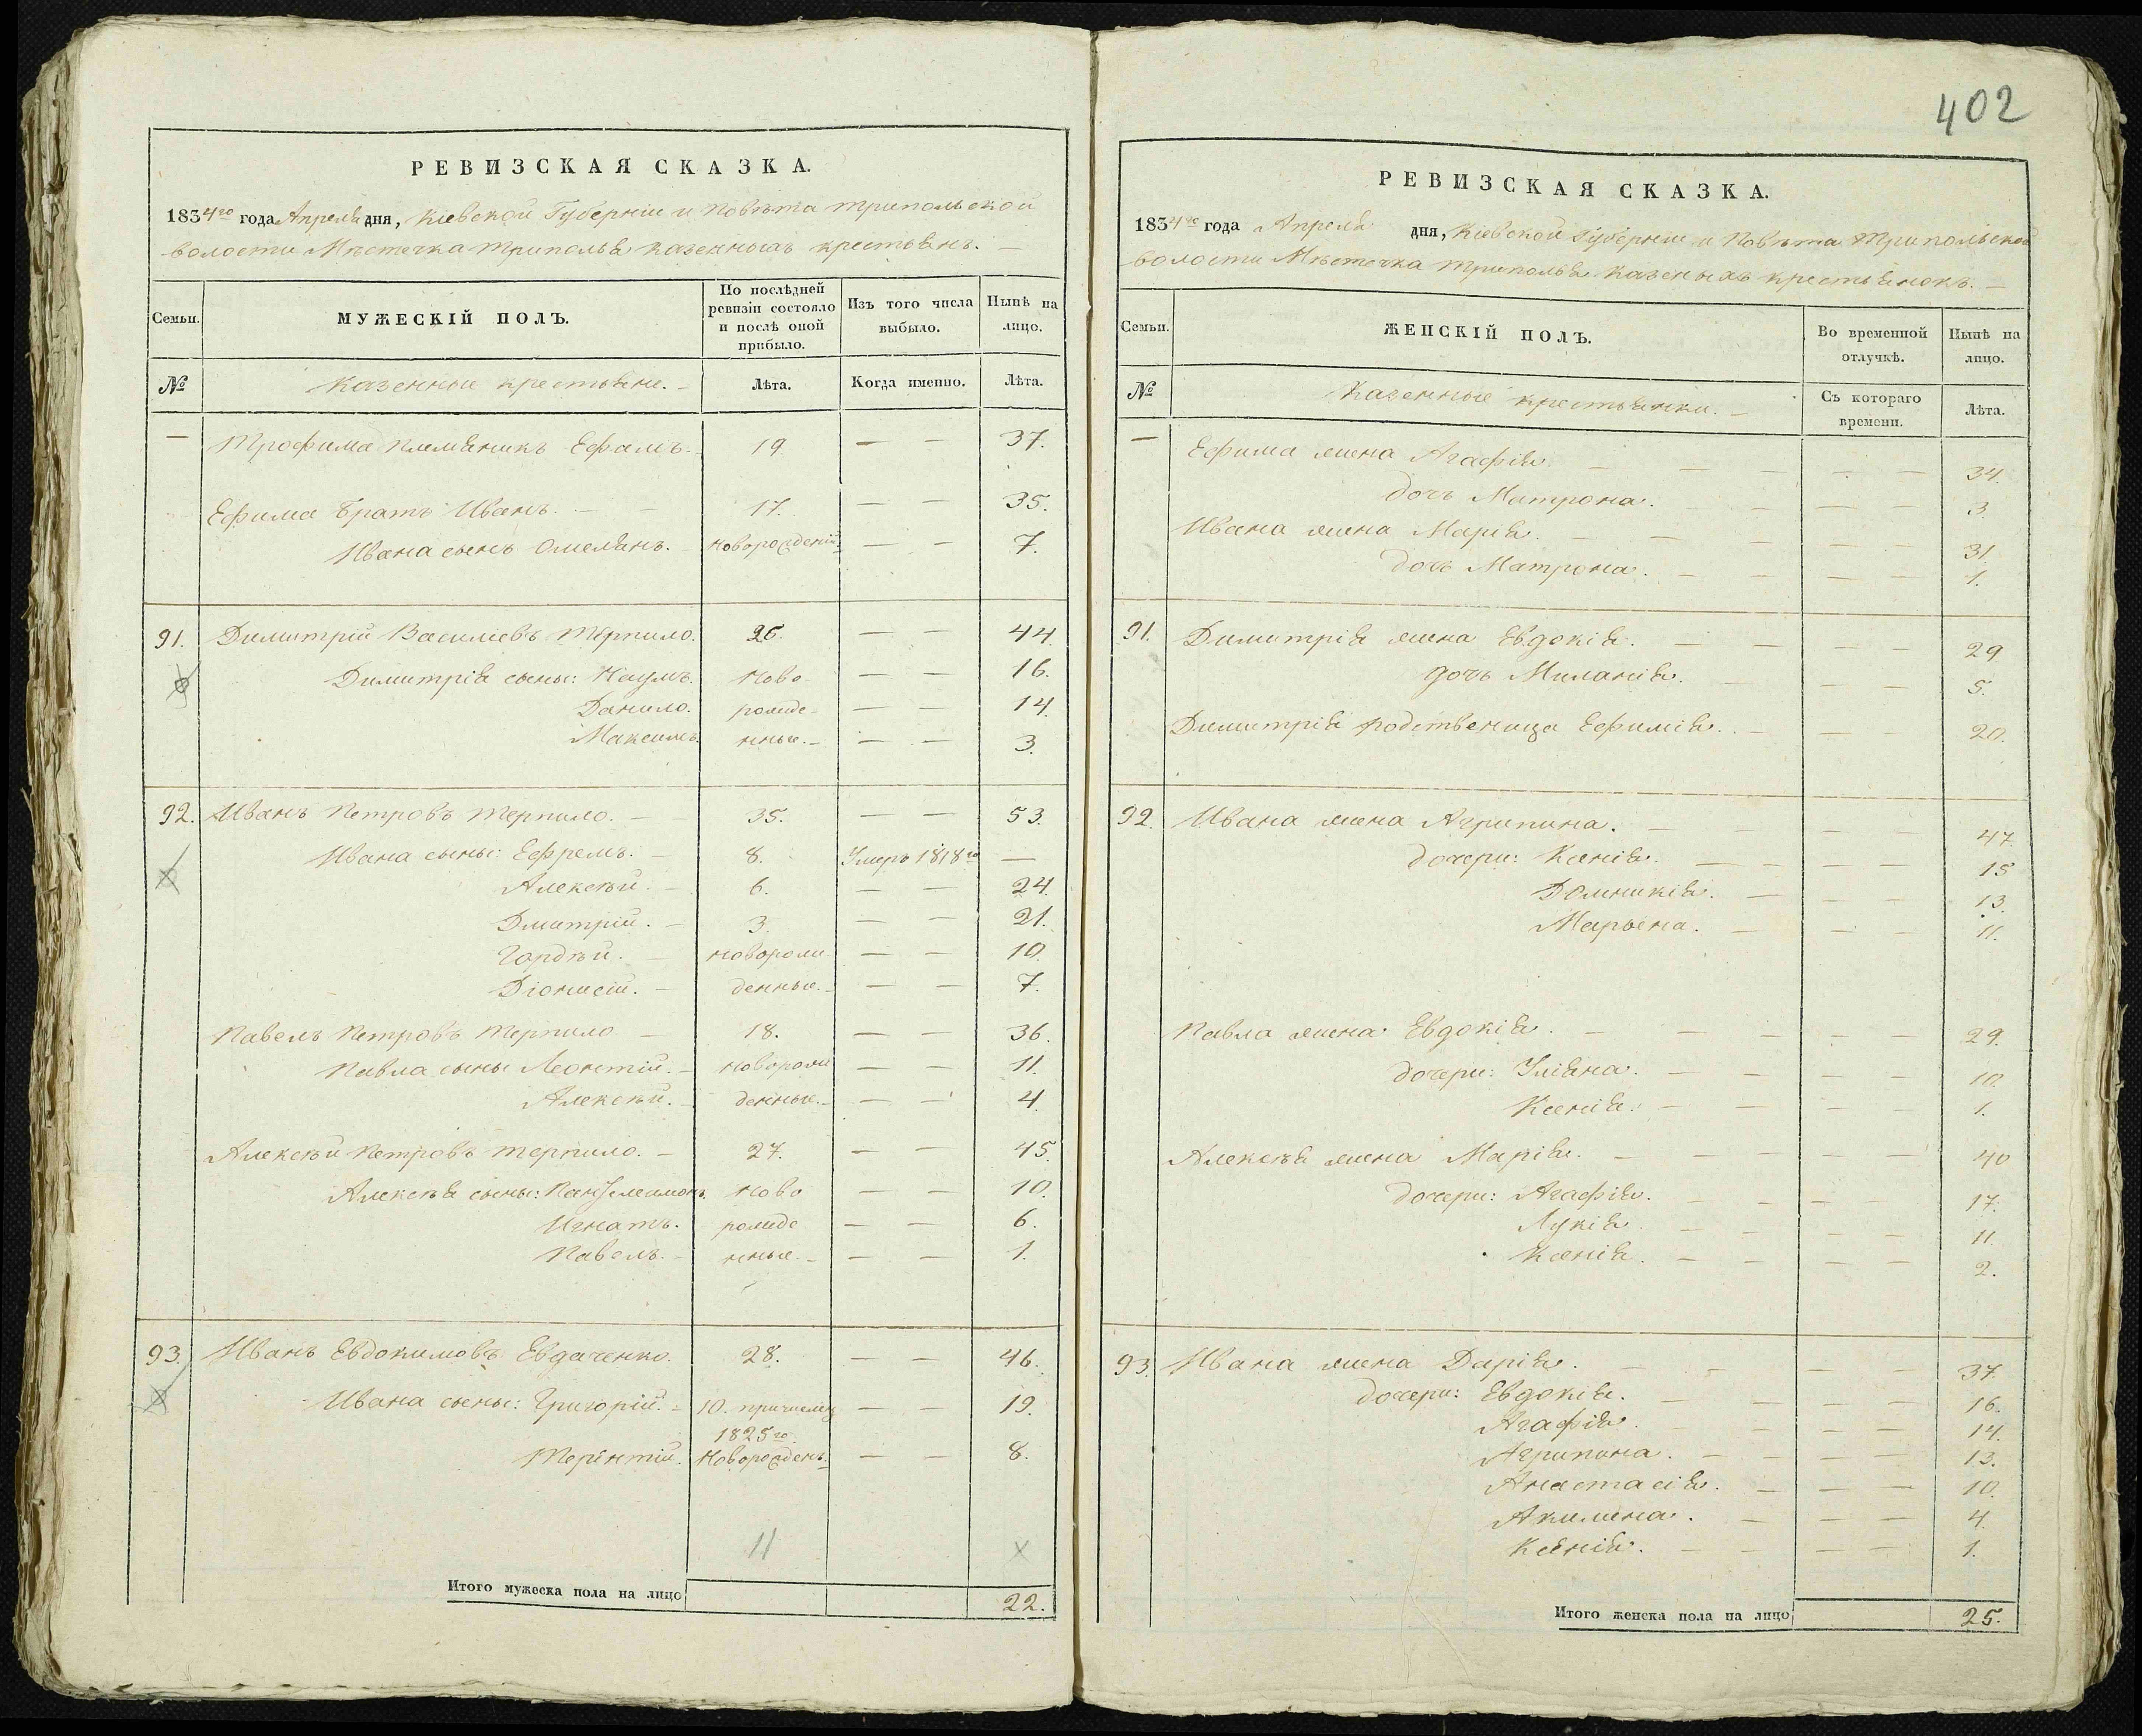 РЕВИЗСКАЯ СКАЗКА.
1834го года Апреля дня, Кіевской Губерніи и Повѣта Трипольской
волости Мѣстечка Триполья казенныхъ крестьянъ. —
Семьи. МУЖЕСКІЙ ПОЛЪ. По послѣдней ревизіи состояло и послѣ оной прибыло. Изъ того числа выбыло. Нынѣ на лицо.
№ Казенные крестьяне. — Лѣта. Когда именно. Лѣта.
— Трофима племяникъ Ефимъ. 19 — — 37.
Ефима братъ Иванъ. — — 17. — — 35.
Ивана сынъ Омелянъ. Новорожденій — — 7.
91. Димитрій Василіевъ Терпило. 26. — — 44.
Димитрія сыны: Наумъ. Ново — — 16.
Данило. рожде — — 14.
Максимъ. нные. — — — 3.
92. Иванъ Петровъ Терпило. — 35. — — 53.
Ивана сыны: Ефремъ. — 8. Умеръ 1818го —
Алексѣй. — 6. — — 24.
Дмитрій. — 3. — — 21.
Гордѣй. — Новорож — — 10.
Діонисій. — денные. — — — 7.
Павелъ Петровъ Терпило — 18. — — 36.
Павла сыны Леонтій. — Новорож — — 11.
Алексѣй. — денные. — — — 4.
Алексѣй Петровъ Терпило. — 27. — — 45.
Алексѣя сыны: Пантелимонъ. Ново — — 10.
Игнатъ. рожде — — 6.
Павелъ. — нные. — — — 1.
93. Иванъ Евдокимовъ Евдаченко. 28. — — 46.
Ивана сыны: Григорій. — 10. причислен — — 19.
1825го
Терентій. Новорожденъ. — — 8.
11 х
Итого мужеска пола на лицо 22.
402
РЕВИЗСКАЯ СКАЗКА.
1834го года Апреля дня, Кіевской Губерніи и Повѣта Трипольской
волости Мѣстечка Триполья казеныхъ крестьянокъ. —
Семьи. ЖЕНСКІЙ ПОЛЪ. Во временной отлучкѣ. Нынѣ на лицо.
№ Казенные крестьянки. — Съ котораго времени. Лѣта.
— Ефима жена Агафія. — — — — — 34.
дочь Матрона. — — — — 3.
Ивана жена Марія. — — — — — 31.
дочь Матрона. — — — — 1.
91. Димитрія жена Евдокія. — — — — 29
дочь Миланія. — — — 5.
Димитрія родственица Ефимія. — — — 20.
92. Ивана жена Агрипина. — — — 47.
дочери: Ксенія. — — — — 15
Домникія. — — — 13.
Марьена. — — — 11.
Павла жена Евдокія. — — — — — 29.
дочери: Уліяна. — — — — — 10.
Ксенія. — — — — 1.
Алексѣя жена Марія. — — — — — 40
дочери: Агафія. — — — — 17.
Лукія. — — — — 11.
Ксенія. — — — — 2.
93. Ивана жена Дарія. — — — — 37.
дочери: Евдокія. — — — — 16.
Агафія. — — — — 14.
Агрипина. — — — — 13.
Анастасія. — — — 10.
Акилина. — — — 4.
Ксенія. — — — — 1.
Итого женска пола на лицо 25.